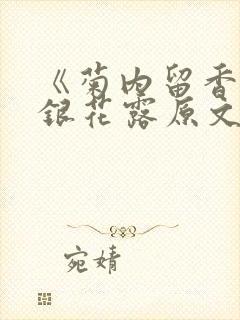 《菊内留香
银花露原文
宛婧